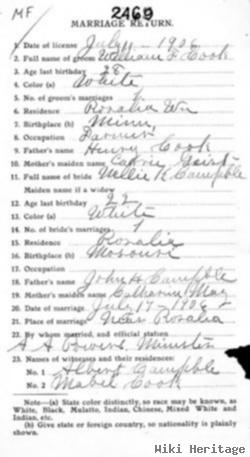 MF
2469
MARRIAGE RETURN.
1. Date of license July 11 - 1906
2. Full name of groom William F. Cook
3. Age last birthday 28
4. Color (a) White
5. No. of groom's marriages 1
6. Residence Rosalia Wn
7. Birthplace (b) Minn,
8. Occupation Farmer
9. Father's name Henry Cook
10. Mother's maiden name Carrie
11. Full name of bride Nellie R. Campble
Maiden name if a widow
12. Age last birthday 22
13. Color (a) White
14. No. of bride's marriages 1
15. Residence Rosalia
16. Birthplace (b) Missouri
17. Occupation
18. Father's name John H Campble
19. Mother's maiden name Catharine May
20. Date of marriage July 17 - 1906
21. Place of marriage Near Rosalia
22. By whom married, and official station
A. A. Powers Minister
23. Names of witnesses and their residences:
No. 1 Albert Campble
No. 2 Mabel Cook
Note—(a) State color distinctly, so race may be known, as
White, Black, Mulatto, Indian, Chinese, Mixed White and
Indian, etc.
(b) Give state or foreign country, so nationality is plainly
shown.
Wiki Heritage